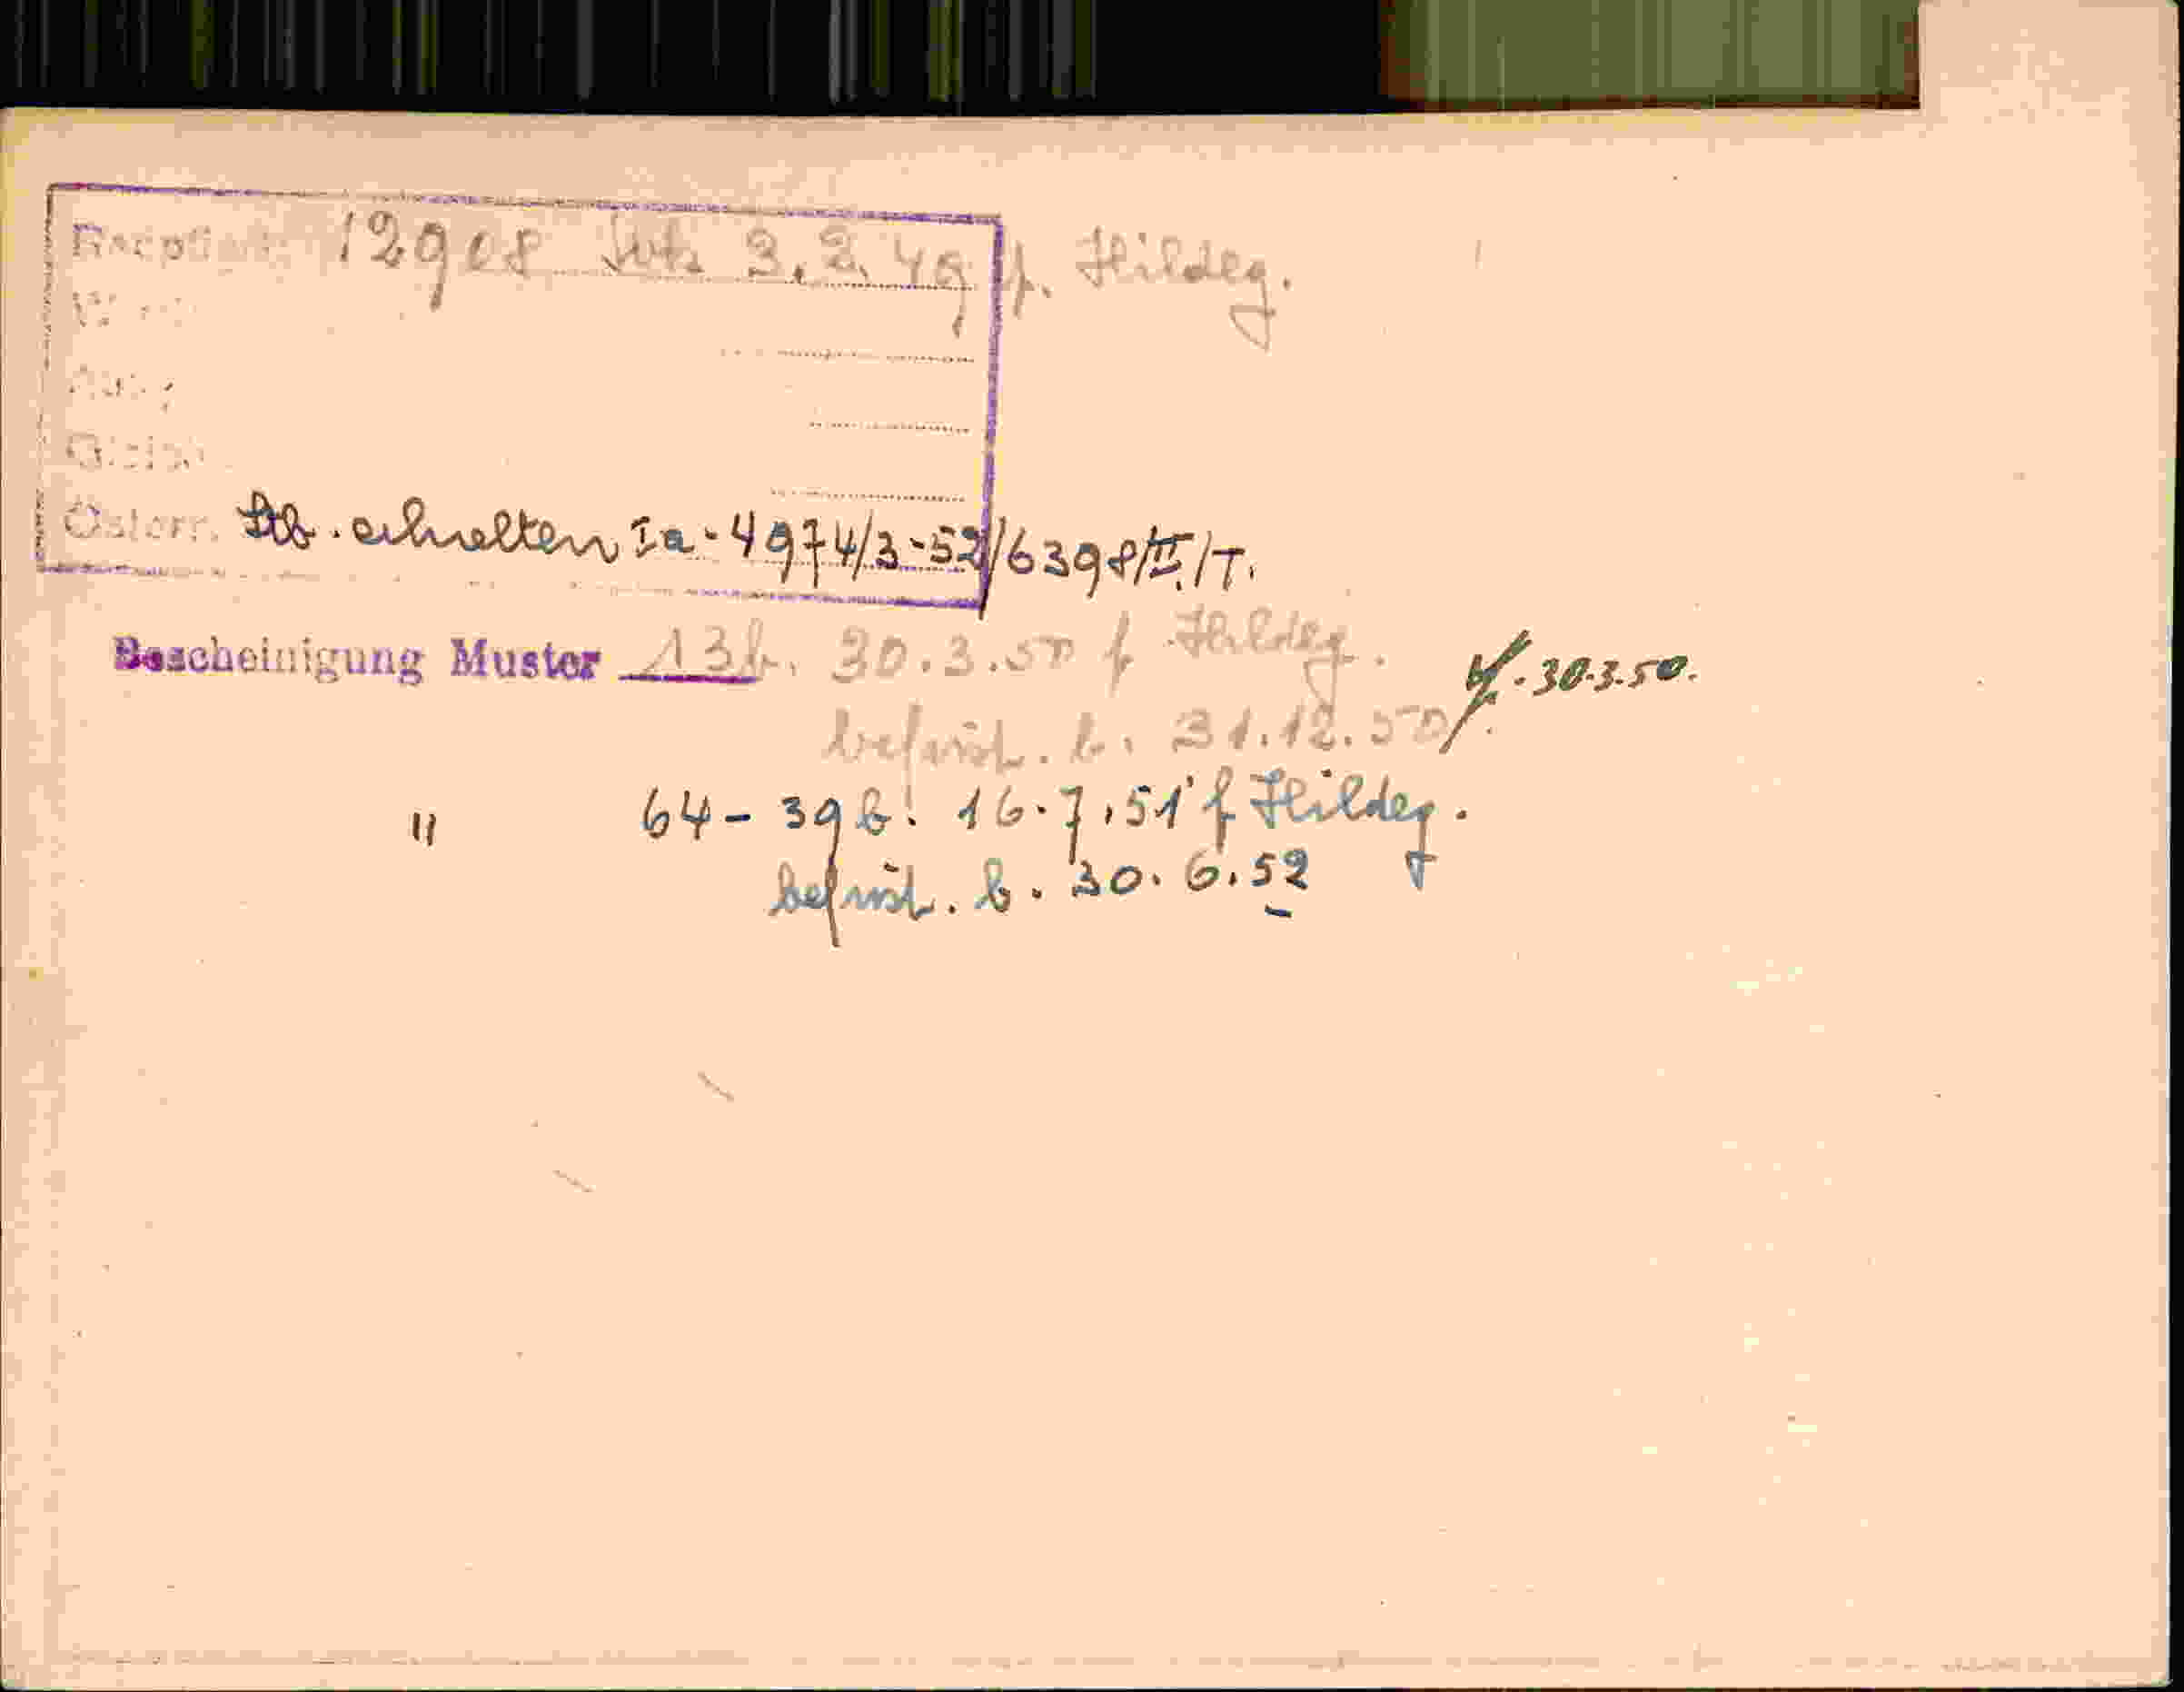 12908 3.2.49 f. Hildeg.
Österr. Stb. erhalten Ia-4974/3-52/6398/II/T.
Bescheinigung Muster 13 b. 30.3.50 f Hildeg.
30.3.50.
befrist. b. 31.12.50
" 64-39 b. 16.7.51 f Hildeg.
befrist. b. 30.6.52